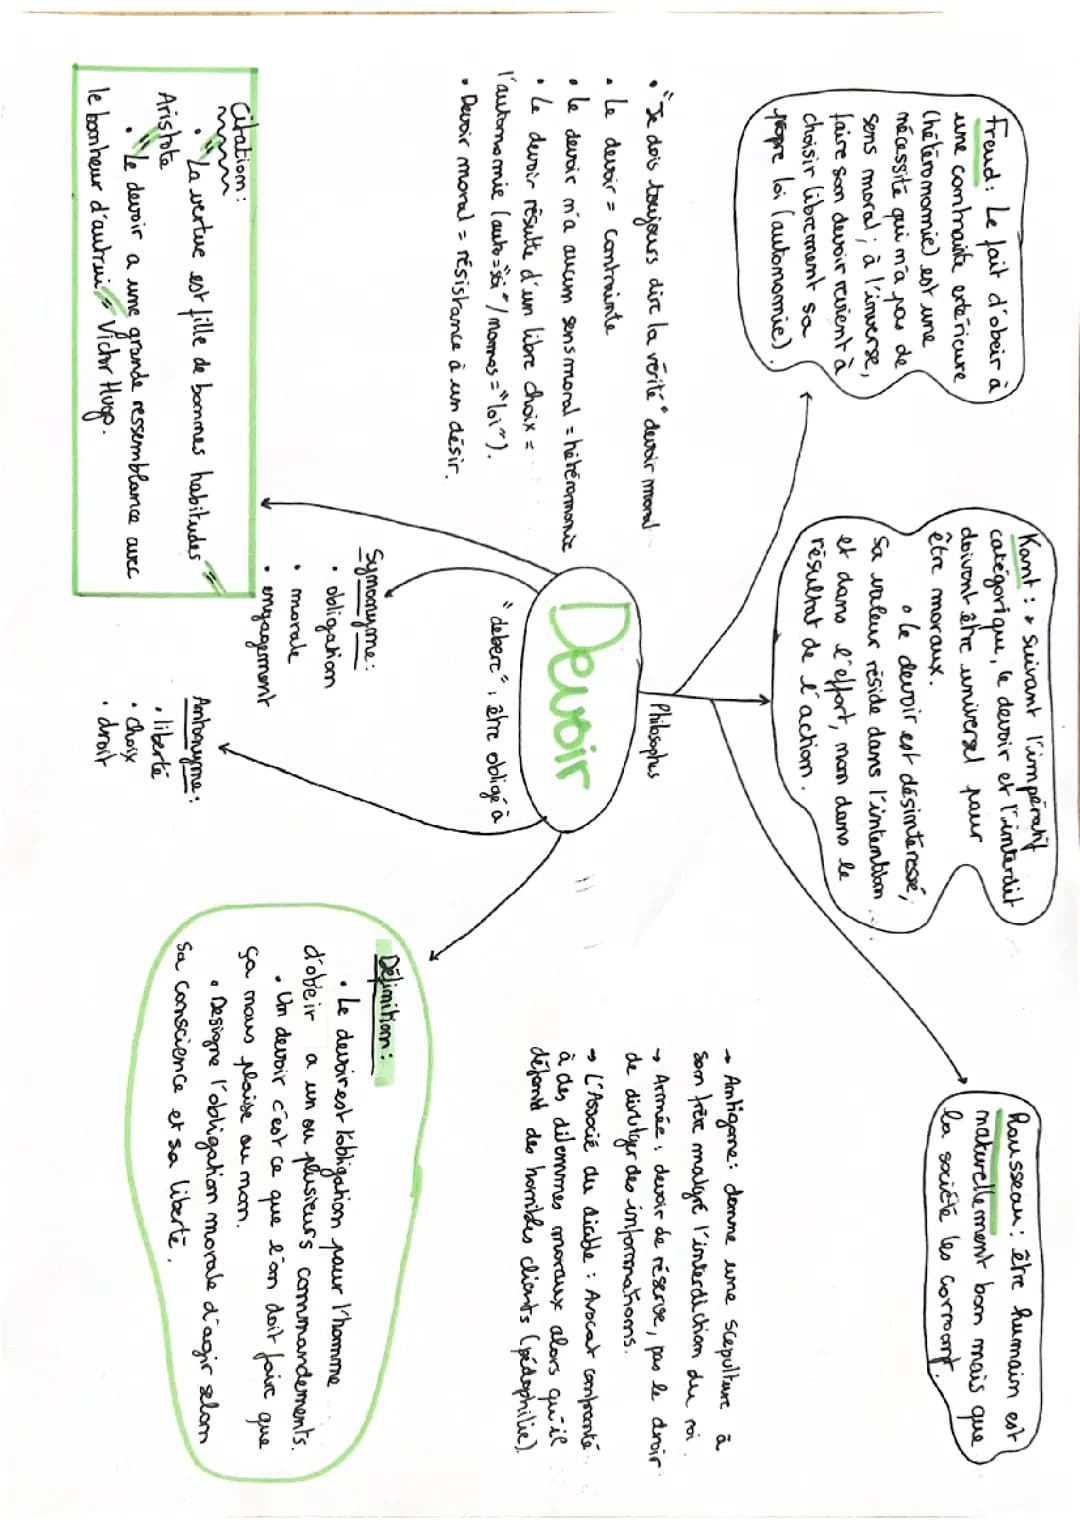 Freud : Le fait d'obéir à
une contrainte extérieure
(hétéronomie) est une
nécessité qui n'a pas de
sens moral ; à l'inverse,
faire son devoir revient à
choisir librement sa
propre loi (autonomie).
Kant : • suivant l'impératif
catégorique, le devoir et l'interdit
doivent être universel pour
être moraux.
• le devoir est désintéressé,
Sa valeur réside dans l'intention
et dans l'effort, non dans le
résultat de l'action.
Rousseau : être humain est
naturellement bon mais que
la société les corrompt.
• "Je dois toujours dire la vérité" devoir moral
• Le devoir = contrainte
• le devoir n'a aucun sens moral = hétéronomie
• Le devoir résulte d'un libre choix =
l'autonomie (auto = "soi" / nomos = "loi").
• Devoir moral = résistance à un désir.
Philosophes
Devoir
"debere", être obligé à
→ Antigone : donne une scepulture à
son frère malgré l'interdiction du roi.
→ Armée : devoir de réserve, pas le devoir
de divulger des informations.
→ L'Associé du diable : Avocat confronté
à des dilemmes moraux alors qu'il
défend des horribles clients (pédophilie).
Synonyme :
• obligation
• morale
• engagement
Antonyme :
• liberté
• choix
• droit
Citation :
• "La vertue est fille de bonnes habitudes"
Aristote
• "Le devoir a une grande ressemblance avec
le bonheur d'autrui" Victor Hugo.
Définition :
• Le devoir est l'obligation pour l'homme
d'obéir a un ou plusieurs commandements.
• Un devoir c'est ce que l'on doit faire que
ça nous plaise ou non.
• Designe l'obligation morale d'agir selon
sa conscience et sa liberté.